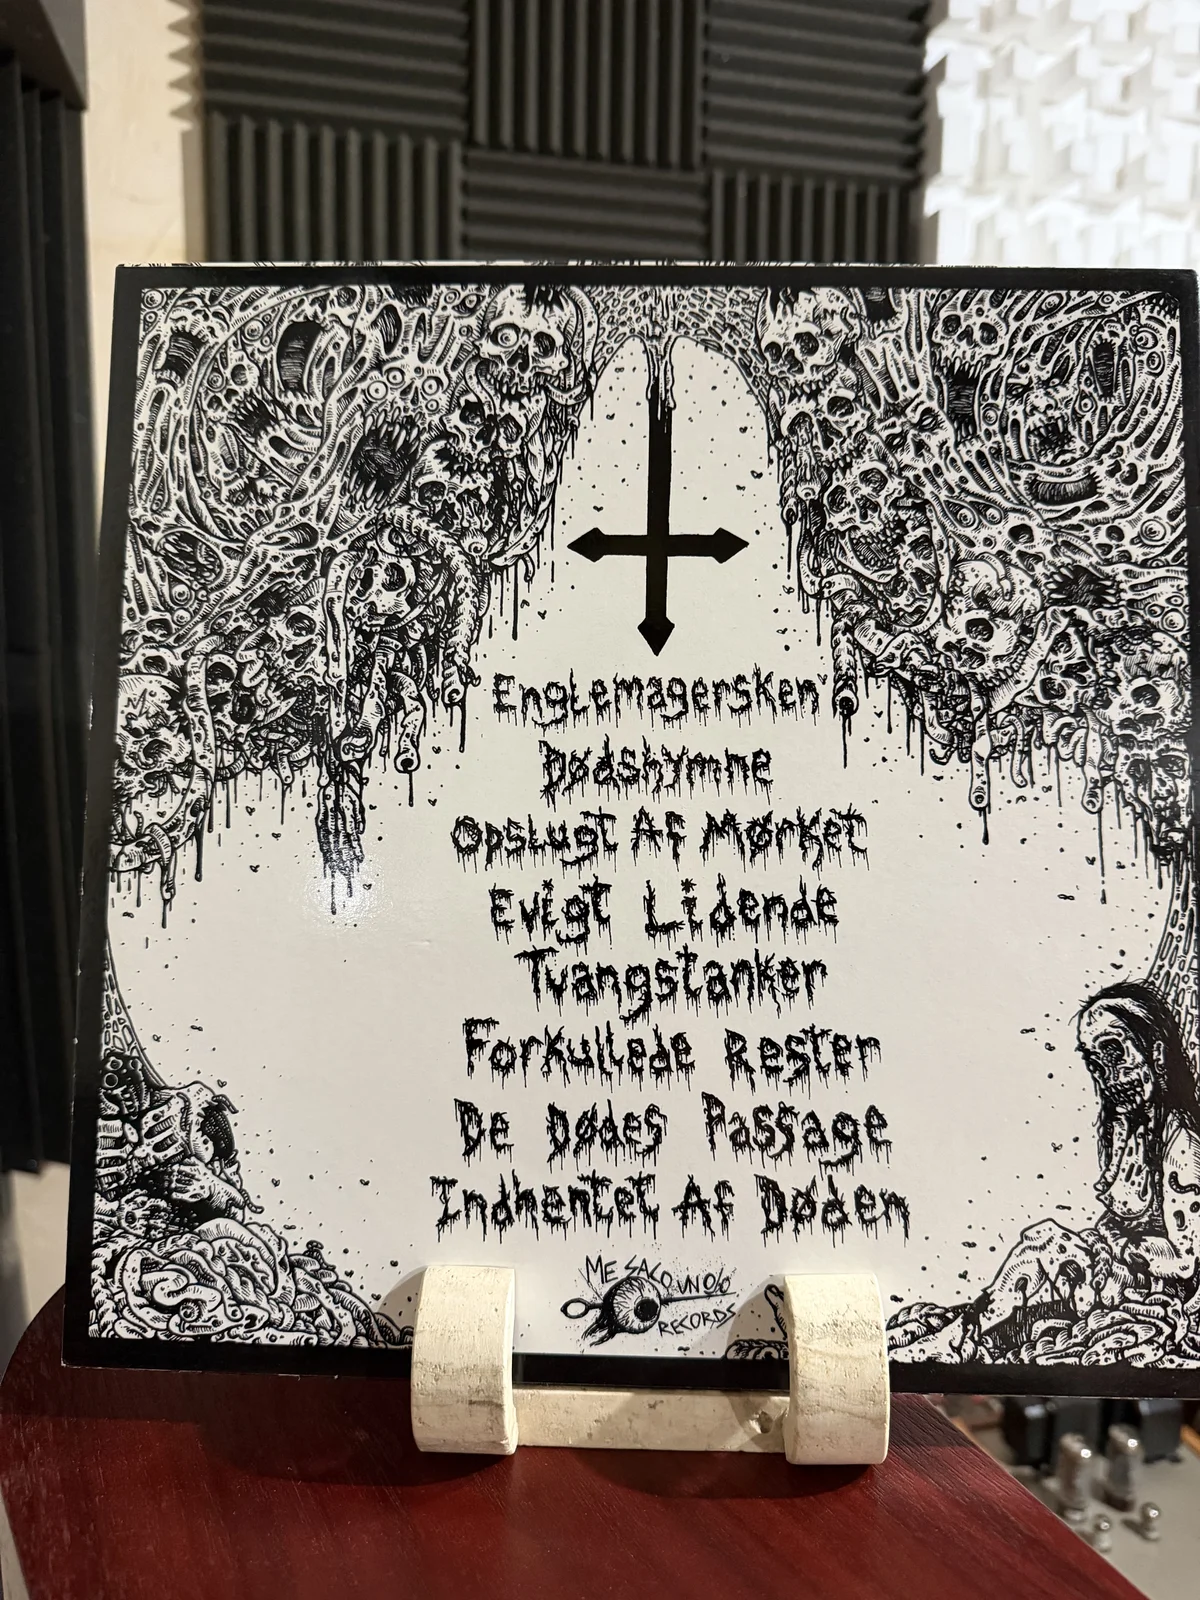 Englemagersken
Dødshymne
Opslugt Af Mørket
Evigt Lidende
Tvangstanker
Forkullede Rester
De Dødes Passage
Indhentet Af Døden
ME SACO UN OJO
RECORDS